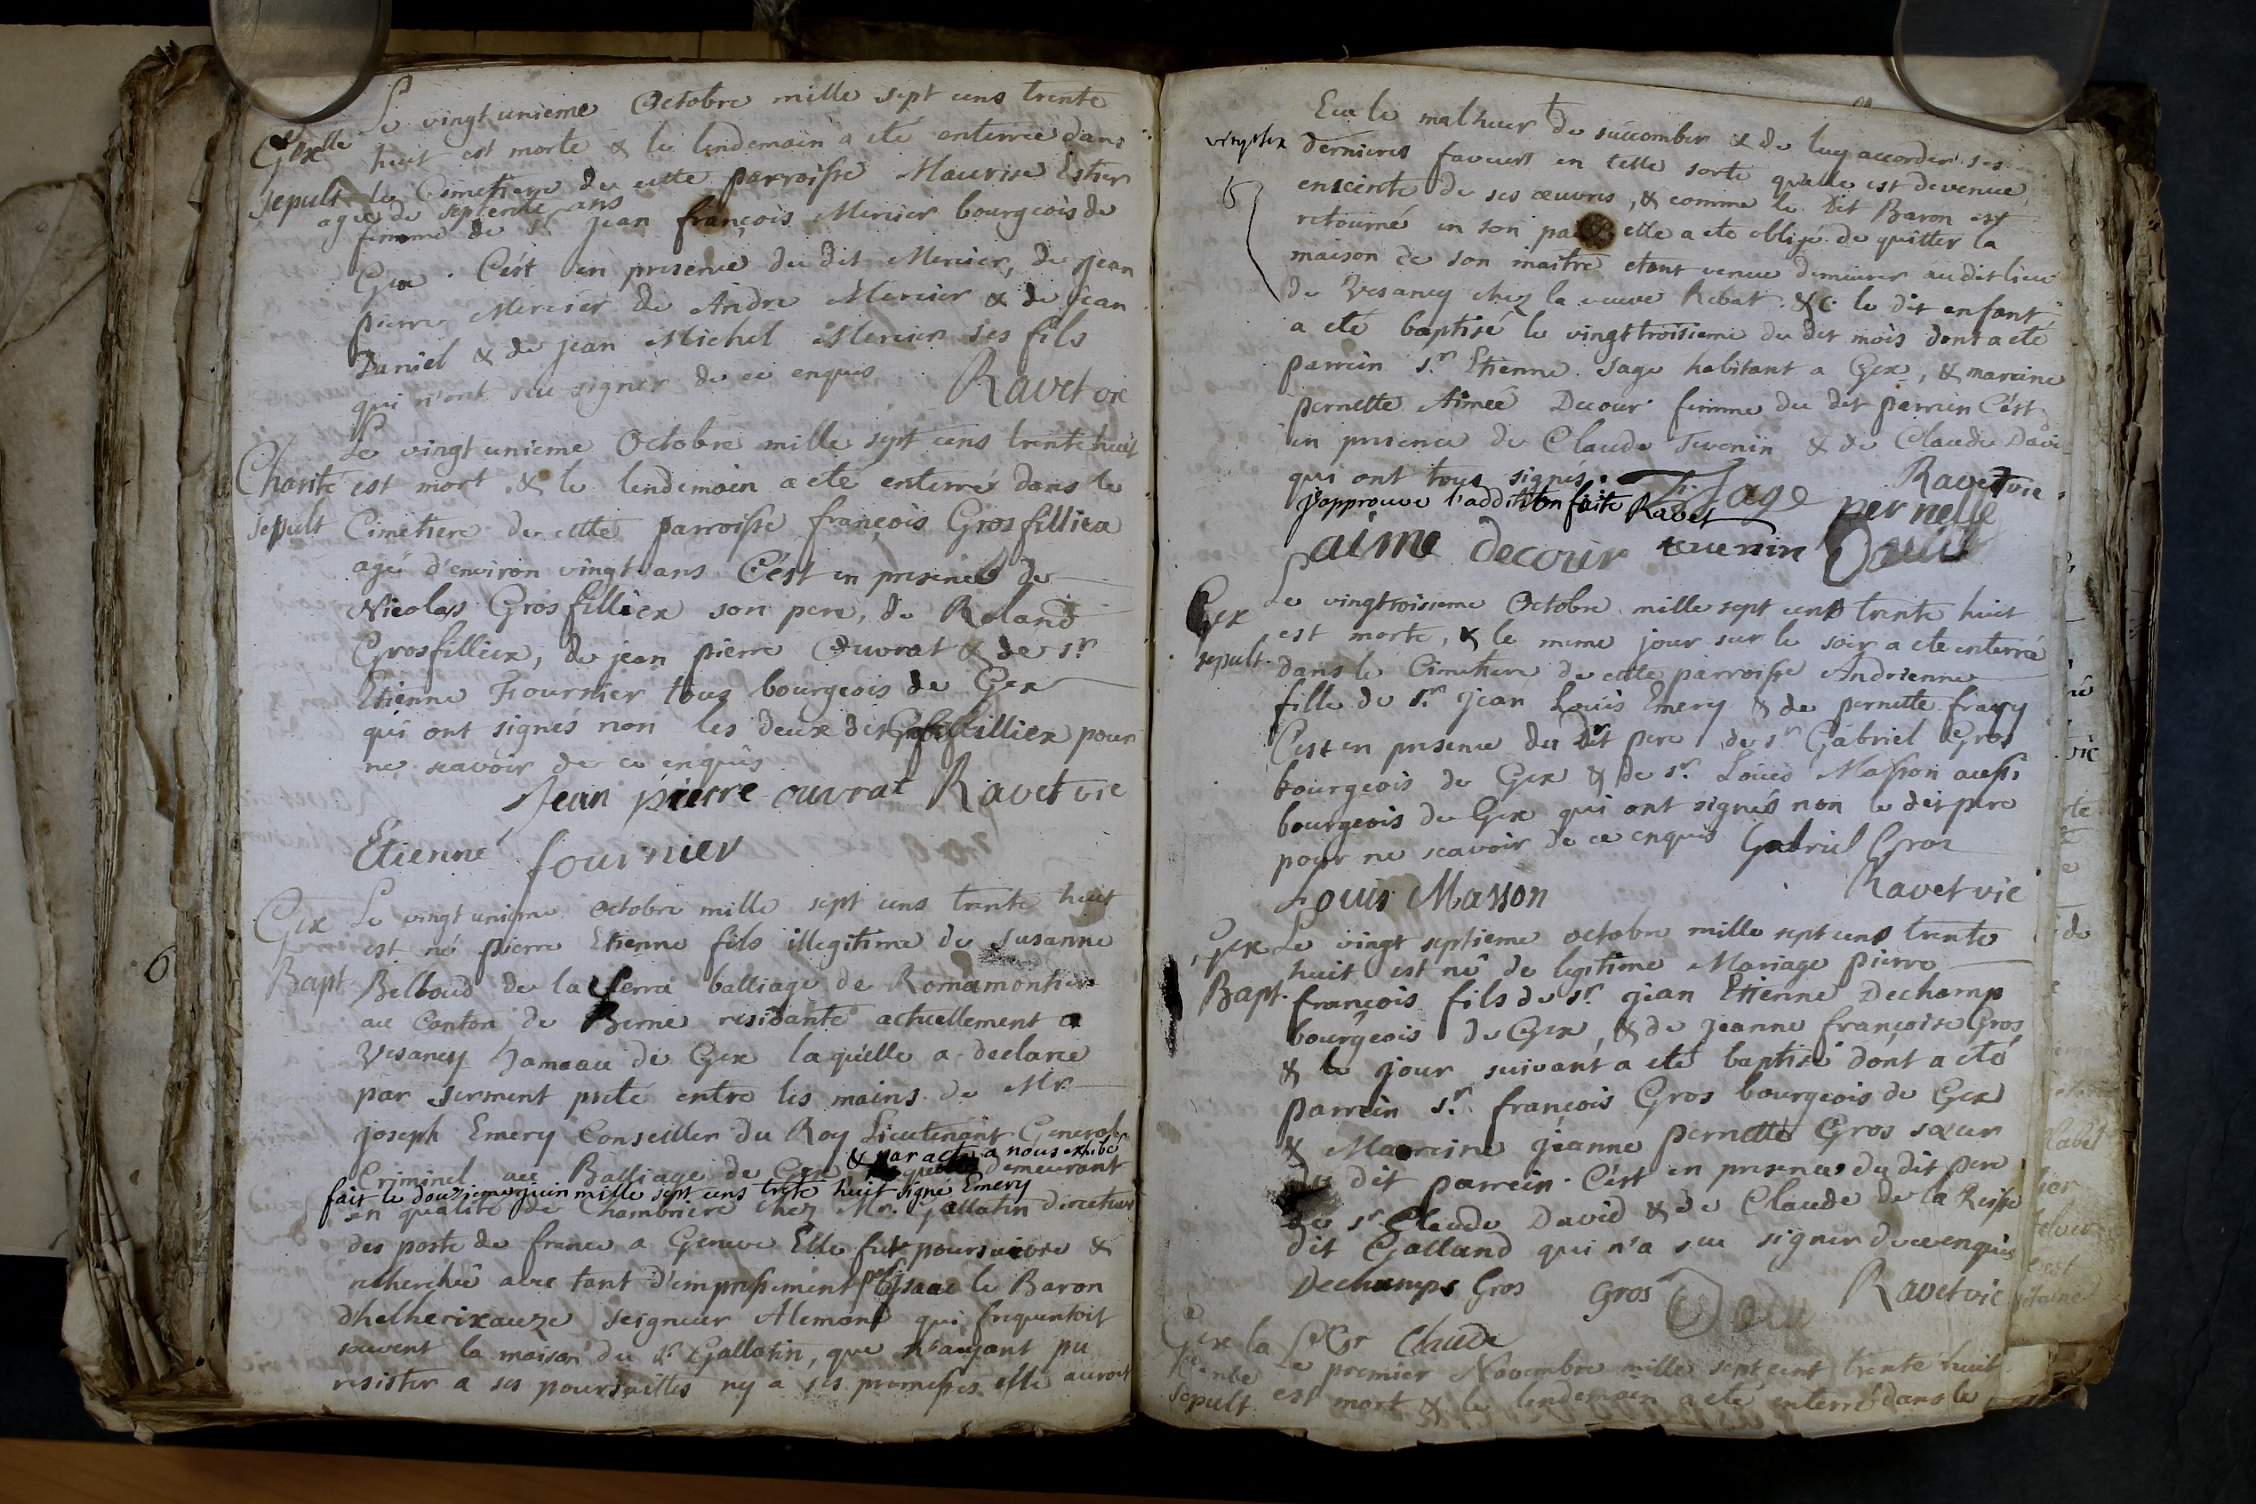 Le vingt unieme Octobre mille sept cens trente
Gex
huit est morte & le lendemain a eté enterrée dans
sepult
le Cimetiere de cette parroisse Maurise Estier
agée de septente ans
femme de Sr jean françois Mercier bourgeois de
Gex. C'est en presence du dit Mercier, de jean
pierre Mercier de Andre Mercier & de jean
Daniel & de jean Michel Mercier ses fils
qui n'ont sceu signer de ce enquis Ravet vic
Le vingt unieme Octobre mille sept cens trente huit
Charite
est mort & le lendemain a eté enterré dans le
sepult
Cimetiere de cette parroisse françois Grosfilliex
agé d'environ vingt ans C'est en presence de
Nicolas Grosfilliex son pere, de Roland
Grosfilliex, de jean pierre Ouvrat & de sr
Etienne Fournier tous bourgeois de Gex
qui ont signés non les deux dits Grosfilliex pour
ne scavoir de ce enquis
Jean pierre ouvrat Ravet vic
Etienne fournier
Gex
Le vingt unieme octobre mille sept cens trente huit
est né pierre Etienne fils illegitime de Susanne
Bapt
Belboud de la ferra balliage de Romamontier
au Canton de Berne residante actuellement a
Vesancy hameau de Gex laquelle a declaré
par serment preté entre les mains de Mr
joseph Emery Conseiller du Roy Lieutenant General
& par acte a nous exhibé
Criminel au Balliage de Gex demeurant
fait le douzieme juin mille sept cens trente huit signé Emery
en qualité de Chambriere chez Mr. Gallatin directeur
des poste de france a Geneve Elle fut poursuivie &
recherchée avec tant d'empressement par Isaac le Baron
d'helherixauze seigneur Alemand qui frequentoit
souvent la maison du sr Gallatin, que n'ayant pu
resister a ses poursuittes ny a ses promesses elle auroit
6
Eu le malheur de succomber & de luy accorder ses
vingt six
dernieres faveurs en telle sorte qu'elle est devenue
6
enceinte de ses œuvres, & comme le dit Baron est
retourné en son pais elle a eté obligé de quitter la
maison de son maitre etant venue demeurer au dit lieu
de Vesancy chez la veuve Rebat &c. le dit enfant
a eté baptisé le vingt troisieme du dit mois dont a eté
parrein sr. Etienne Sage habitant a Gex, & mareine
pernette Aimée Decour femme du dit parrein C'est
en presence de Claude Tevenin & de Claude David
qui ont tous signés. E. Sage Ravet vic
japprouve l'addition faite Ravet pernette
aime decour teuenin David
Gex
Le vingtroisieme Octobre mille sept cens trente huit
est morte, & le meme jour sur le soir a eté enterrée
sepult.
dans le Cimetiere de cette parroisse Andrienne
fille de sr. jean Louis Emery & de pernette
C'est en presence du dit pere, de sr Gabriel Gros
bourgeois de Gex & de sr. Louis Masson aussi
bourgeois de Gex qui ont signés non le dit pere
pour ne scavoir de ce enquis Gabriel Gros
Louis Masson Ravet vic
Gex
Le vingt septieme octobre mille sept cens trente
huit est né de legitime Mariage pierre
Bapt.
françois fils de sr. jean Etienne Dechamp
bourgeois de Gex, & de jeanne françoise Gros
& le jour suivant a eté baptisé dont a eté
parrein sr. françois Gros bourgeois de Gex
& Mareine jeanne pernette Gros sœur
du dit parrein. C'est en presence du dit pere
de sr. Claude David & de Claude de la Reisse
dit Galland qui n'a sceu signer de ce enquis
Dechamps Gros Gros David Ravet vic
Claude
Gex la
Le premier Novembre mille sept cent trente huit
sepult
est mort & le lendemain a eté enterré dans le